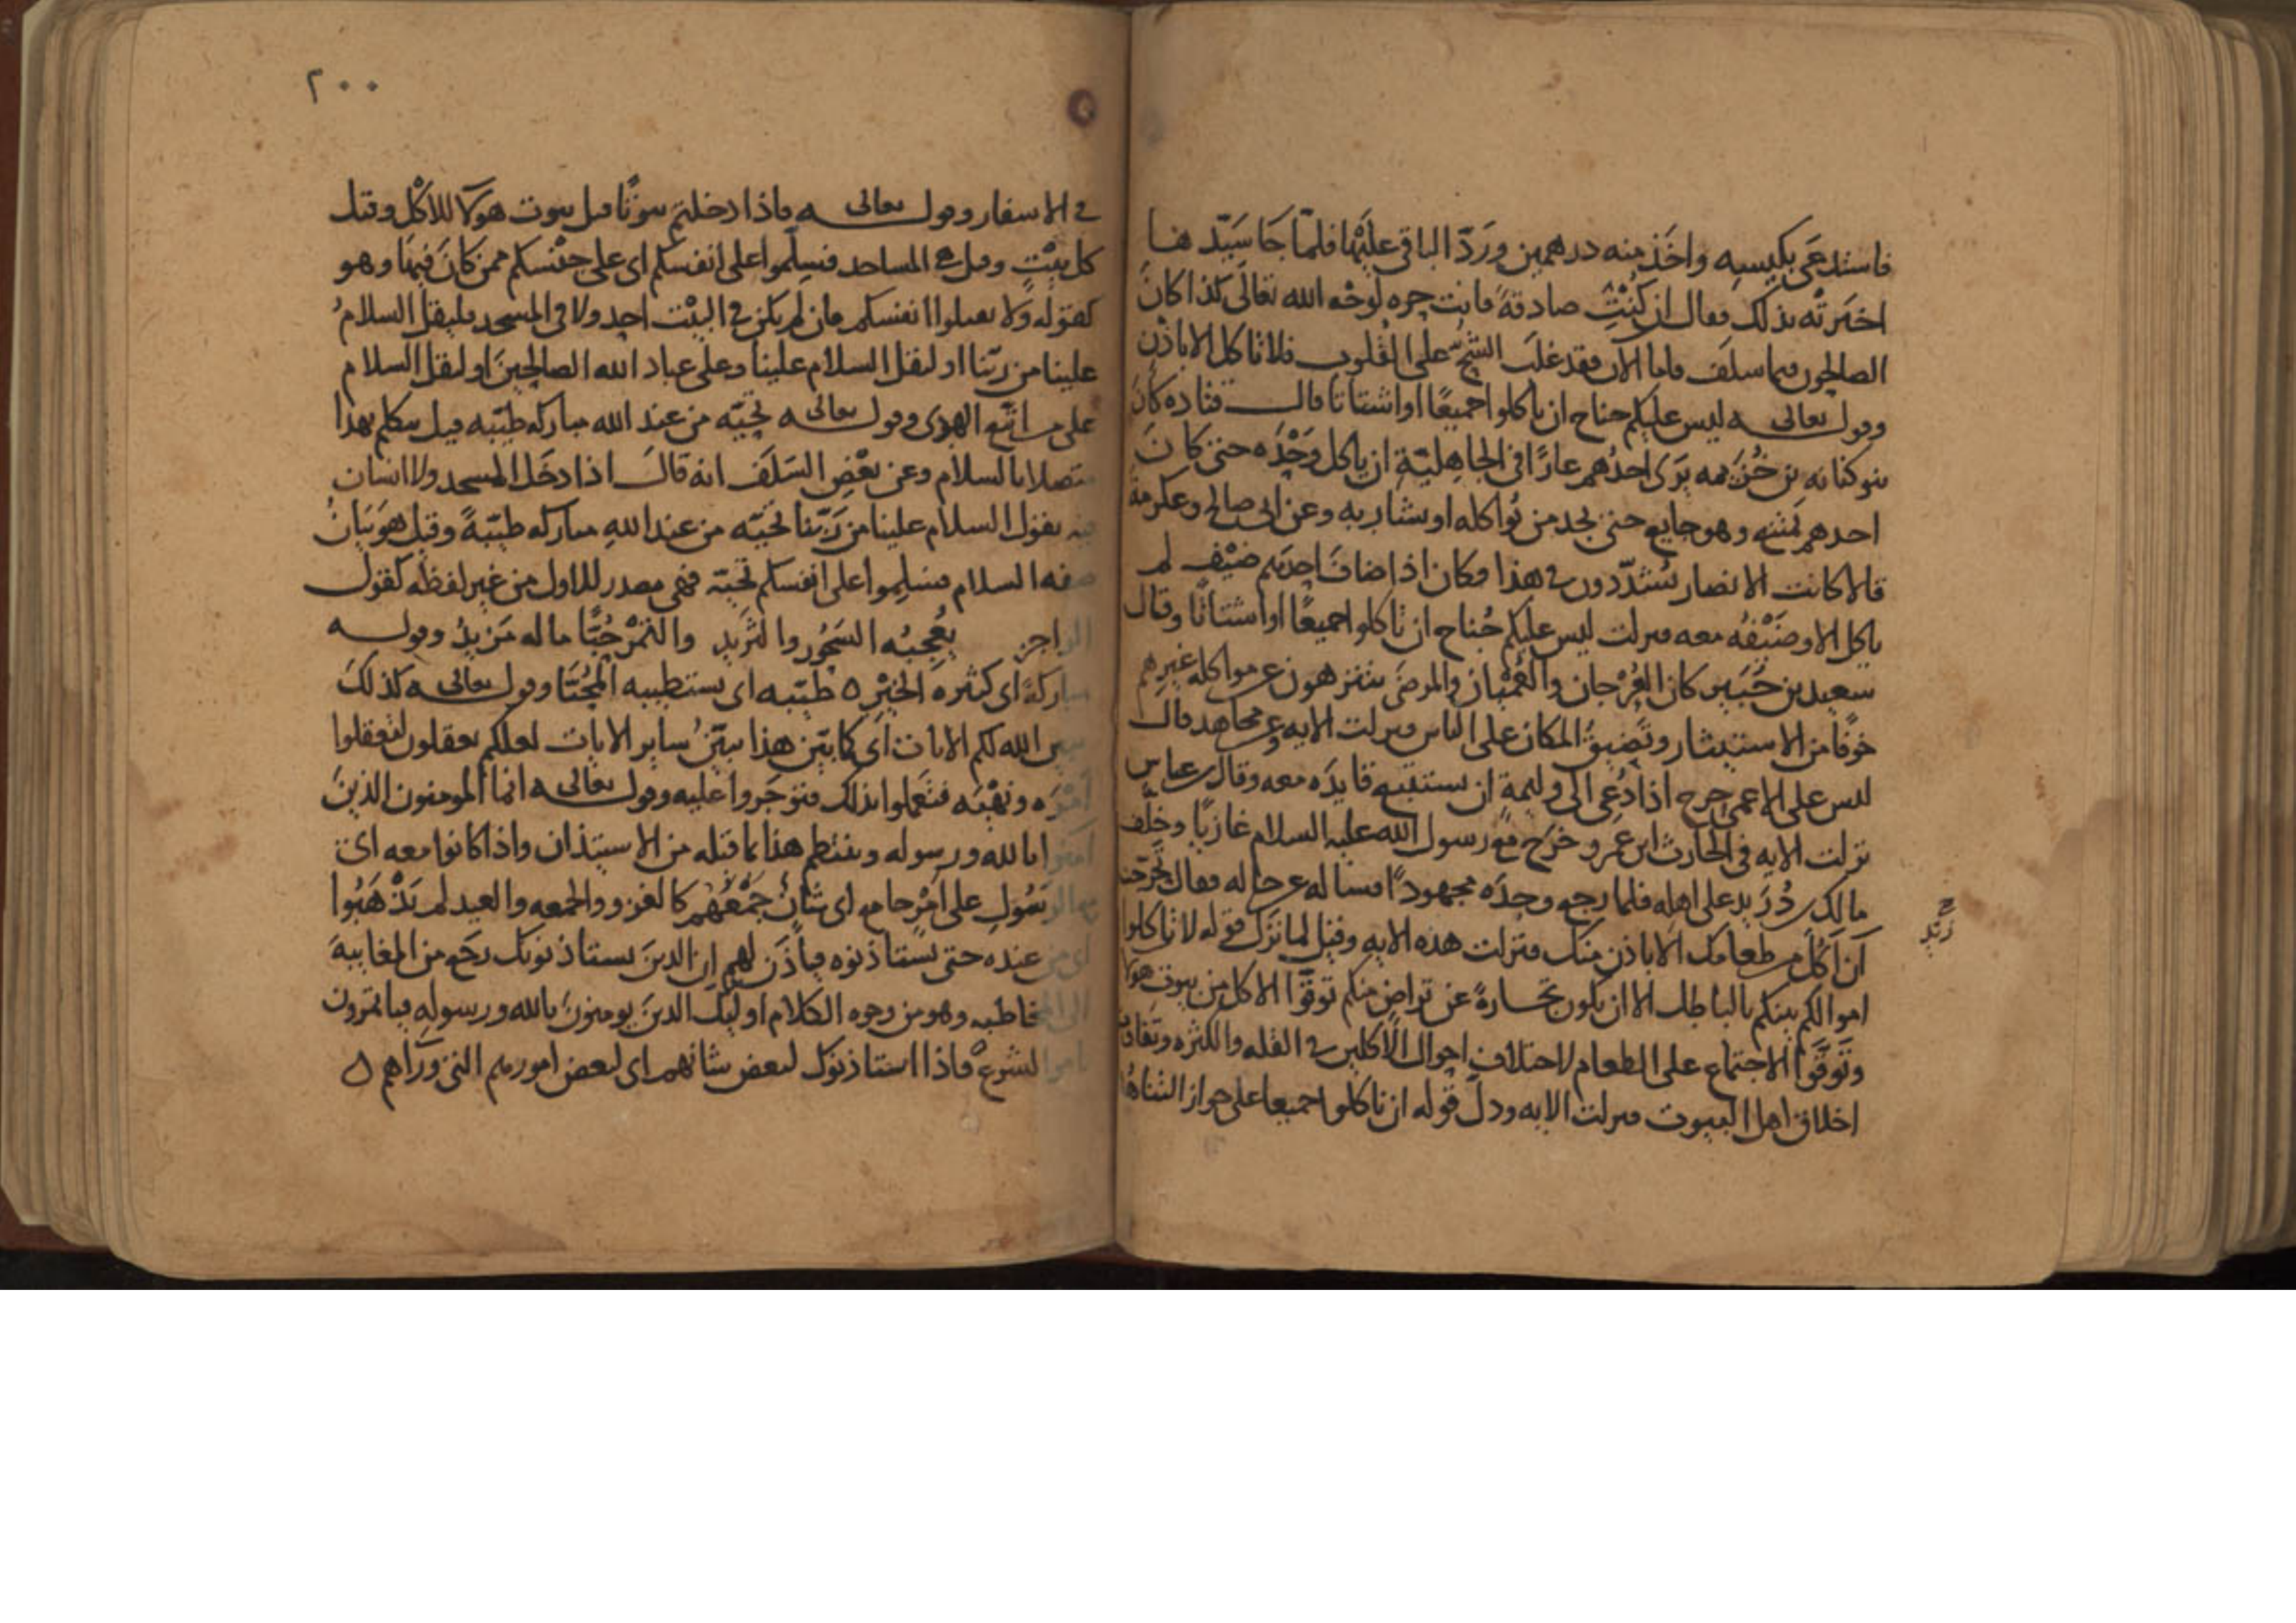 فاستدعى بكيسه واخذ منه درهمين ورد الباقى عليها فلما جا سيدها
اخبرته بذلك فقال ان كنت صادقة فانت حره لوجه الله تعالى كذا كان
الصالحون فيما سلف فاما الآن فقد غلب الشح على القلوب فلا تاكل الا باذن
وقوله تعالى ليس عليكم جناح ان تاكلوا جميعًا او اشتاتا قال قتاده كان
بنو كنانه بن خزيمه يرى احدهم عارًا فى الجاهلية ان ياكل وحده حتى كان
احدهم يمشى وهو جايع حتى يجد من يواكله او يشاربه وعن ابى صالح وعكرمة
قالا كانت الانصار يشددون فى هذا فكان اذا اضاف احدهم ضيف لم
ياكل الا وضيفه معه فنزلت ليس عليكم جناح ان تاكلوا جميعًا او اشتاتًا وقال
سعيد بن جبير كان العرجان والعميان والمرضى يتنزهون عن مواكلة غيرهم
خوفًا من الاستيثار وتضييق المكان على الناس فنزلت الايه وعن مجاهد قال
ليس على الاعمى حرج اذا دعى الى وليمة ان يستتبع قايده معه وقال ابن عباس
نزلت الايه فى الحارث ابن عمرو خرج مع رسول الله عليه السلام غازيًا وخلف
مالك بن دريد على اهله فلما رجع وجده مجهودًا فساله عن حاله فقال تحرجت
زيد
آن آكل من طعامك الا باذن منك فنزلت هذه الايه وقيل لما نزل قوله لا تاكلوا
اموالكم بينكم بالباطل الا ان تكون تجارة عن تراض منكم توقوا الاكل من بيوت هولا
وتوقوا الاجتماع على الطعام لاختلاف احوال الآكلين فى القله والكثره وتفاوت
اخلاق اهل البيوت فنزلت الايه ودل قوله ان تاكلوا جميعا على جواز التناهد
٢٠٠
فى الاسفار وقوله تعالى فاذا دخلتم بيوتًا قيل بيوت هولآ للاكل وقيل
كل بيت وقيل هى المساجد فسلموا على انفسكم اى على جنسكم ممن كان فيها وهو
كقوله ولا تقتلوا انفسكم فان لم يكن فى البيت احد ولا فى المسجد فليقل السلام
علينا من ربنا او ليقل السلام علينا وعلى عباد الله الصالحين او ليقل السلام
على من اتبع الهدى وقوله تعالى تحيه من عند الله مباركه طيبه قيل تكلم بهذا
متصلا بالسلام وعن بعض السلف انه قال اذا دخل المسجد ولا انسان
فيه يقول السلام علينا من ربنا تحيه من عند الله مباركه طيبة وقيل هو بيان
صفه السلام فسلموا على انفسكم تحية فهى مصدر للاول من غير لفظه كقول
الراجز يعجبه السخور والثريد والتمر حبًا ما له مزيد وقوله
مباركة اى كثيره الخير ه طيبه اى يستطيبه المحيا وقوله تعالى كذلك
يبين الله لكم الايات اى كما بين هذا يبين ساير الايات لعلكم تعقلون لتعقلوا
امره ونهيه فتعملوا بذلك فتوجروا عليه وقوله تعالى انما المومنون الذين
آمنوا بالله ورسوله وينتظم هذا بما قبله من الاستيذان واذا كانوا معه اى
مع الرسول على امر جامع اى شان جمعهم كالغزو والجمعه والعيد لم يذهبوا
اى من عنده حتى يستاذنوه فيأذن لهم ان الذين يستاذنونك رجع من المغايبة
الى المخاطبه وهو من وجوه الكلام اوليك الذين يومنون بالله ورسوله فياتمرون
بامر الشرع فاذا استاذنوك لبعض شانهم اى لبعض امورهم التى ورآهم ه